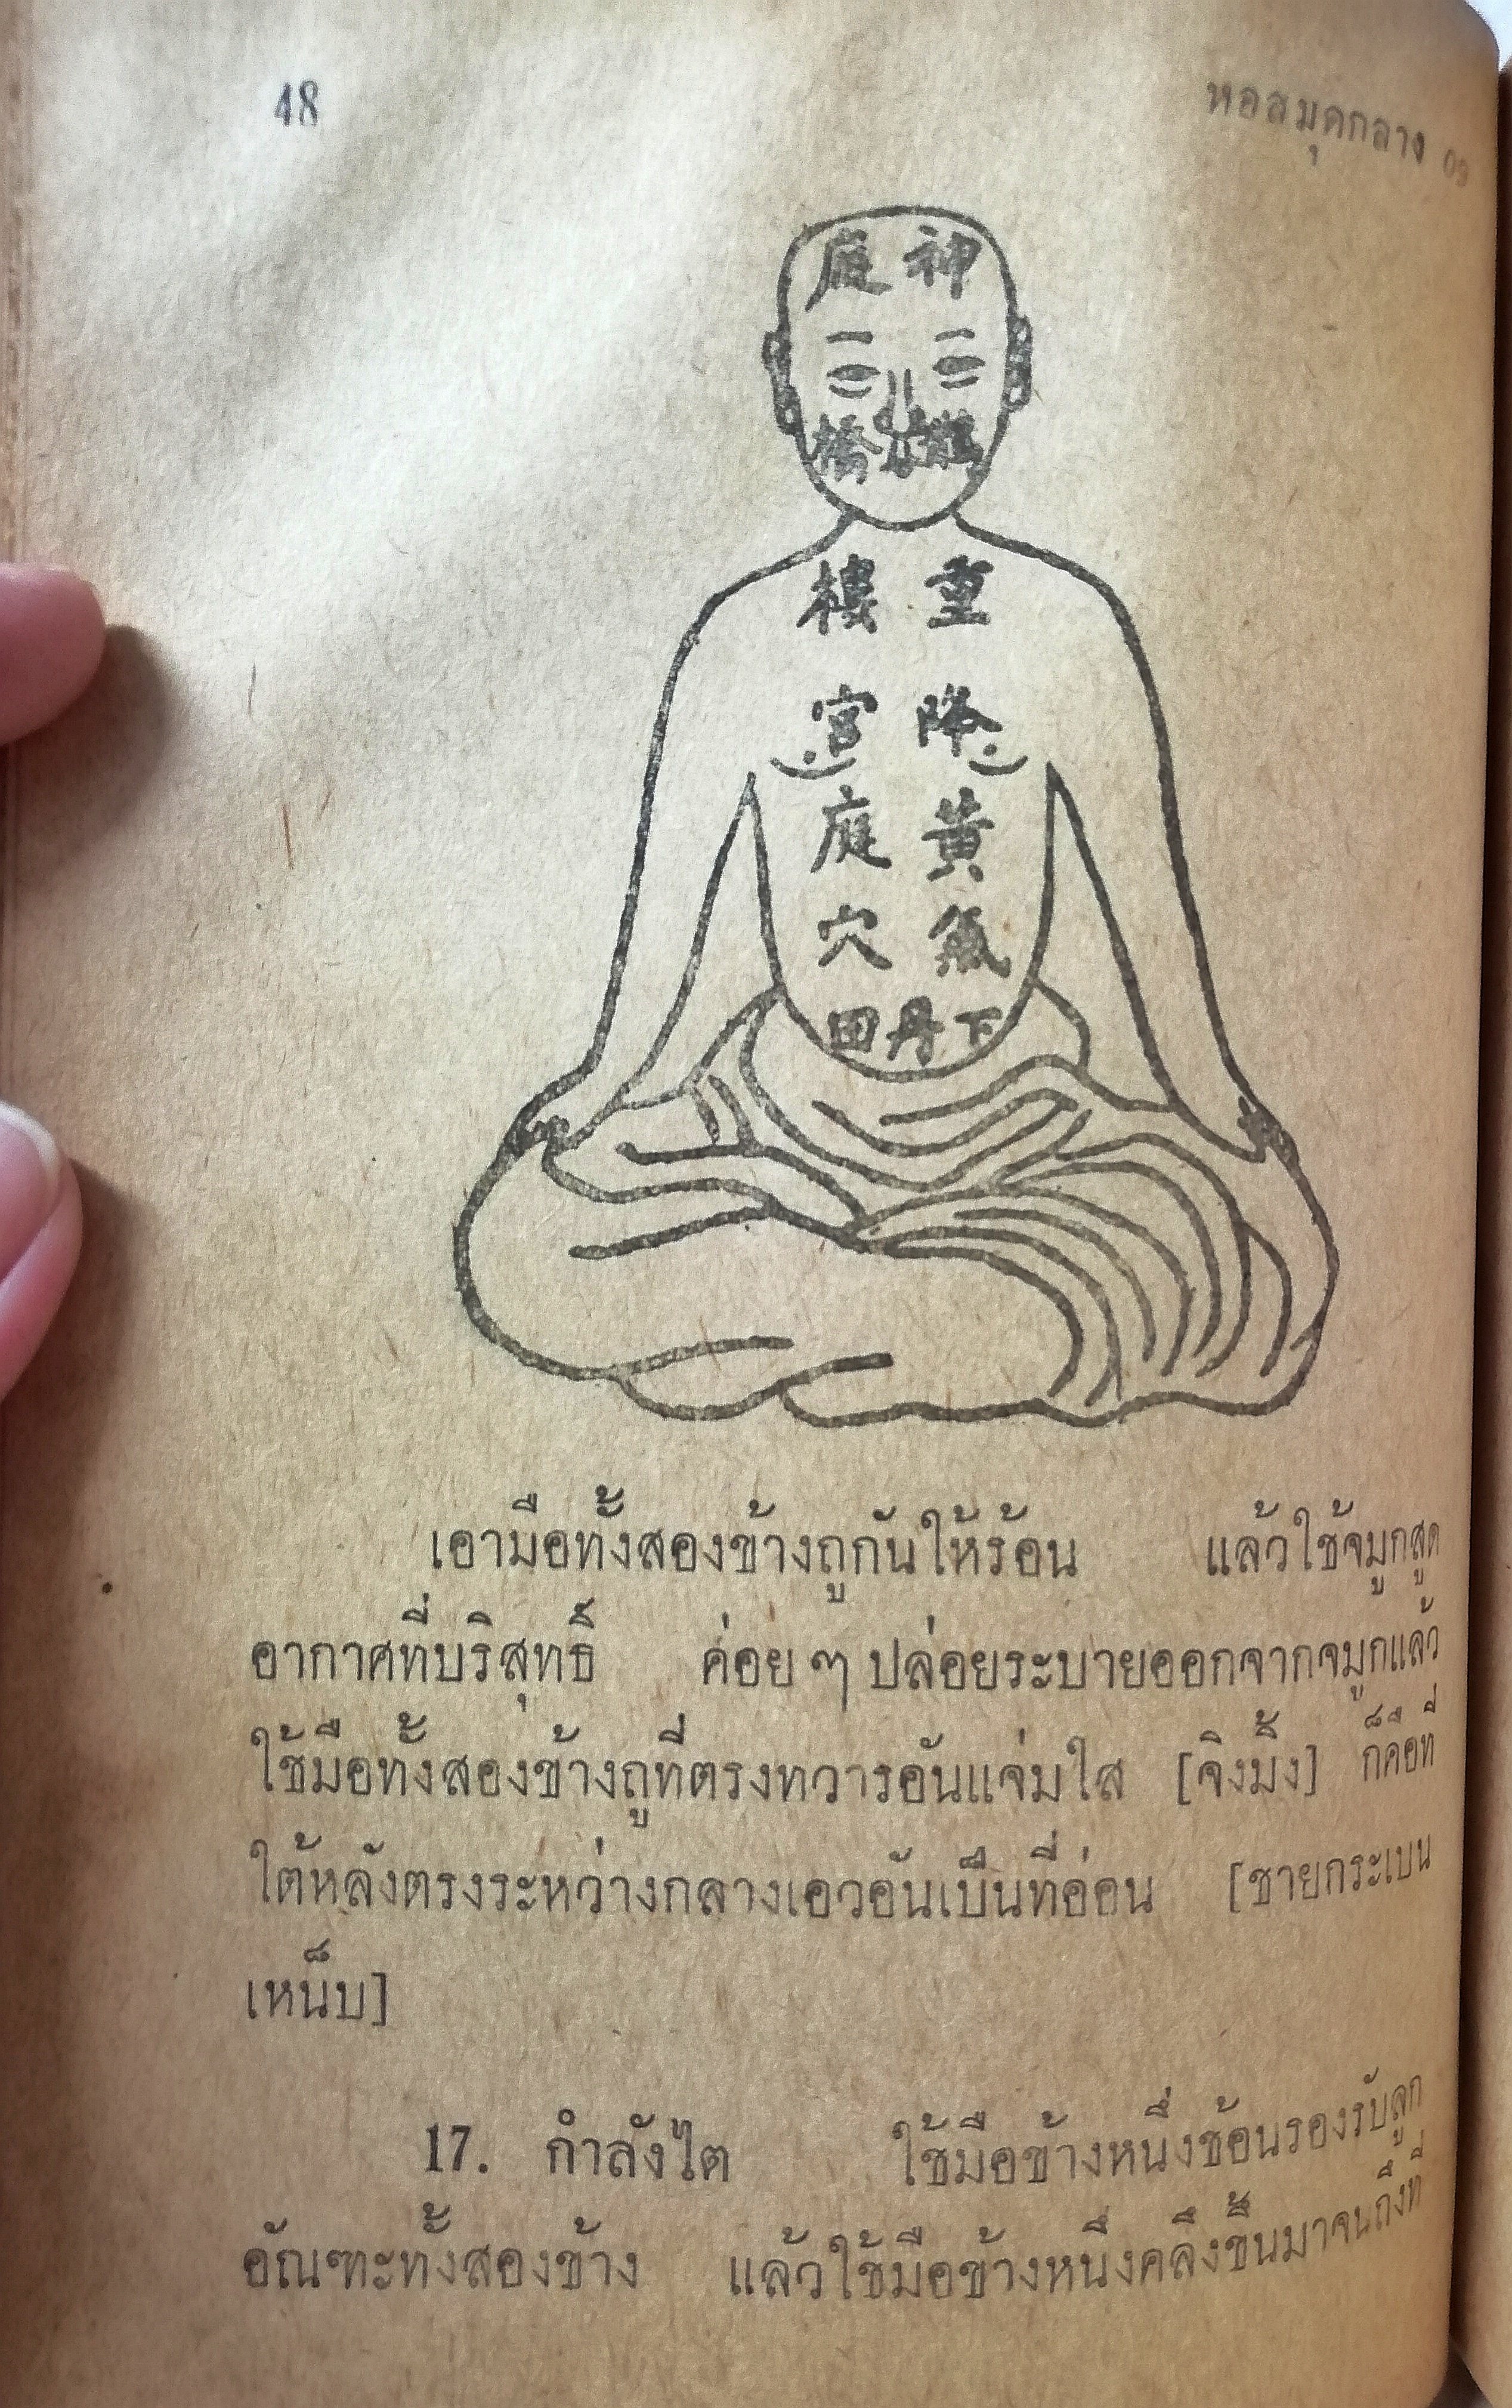 48
หอสมุดกลาง 09
神庭
橋
重樓
降宮
黃庭
氣穴
下丹田
เอามือทั้งสองข้างถูกันให้ร้อน แล้วใช้จมูกสูด
อากาศที่บริสุทธิ์ ค่อย ๆ ปล่อยระบายออกจากจมูกแล้ว
ใช้มือทั้งสองข้างถูที่ตรงทวารอันแจ่มใส [จิงมิ้ง] ก็คือที่
ใต้หลังตรงระหว่างกลางเอวอันเป็นที่อ่อน [ชายกระเบน
เหน็บ]
17. กำลังไต ใช้มือข้างหนึ่งช้อนรองรับลูก
อัณฑะทั้งสองข้าง แล้วใช้มือข้างหนึ่งคลึงขึ้นมาจนถึงที่